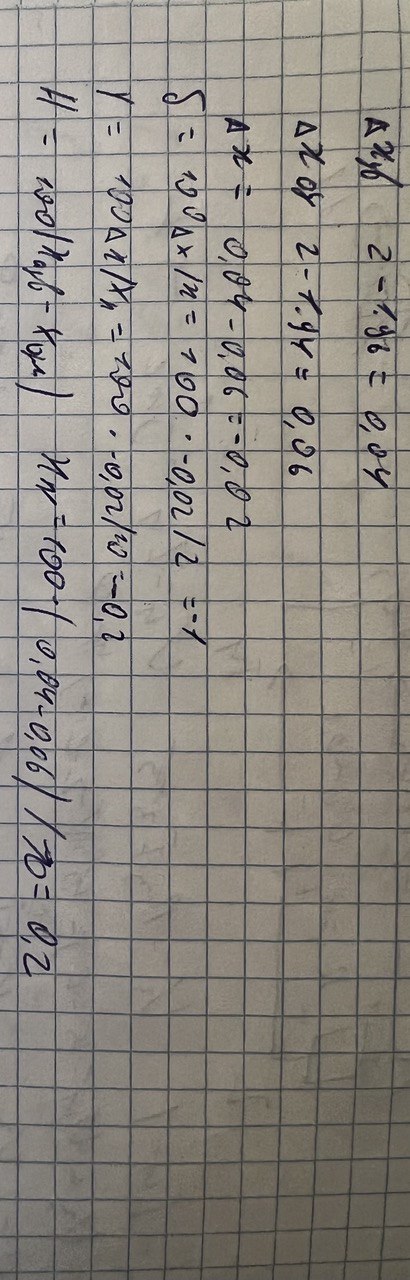 Δxуб 2-1.96 = 0,04
Δxоу 2-1.94 = 0,06
Δx = 0,04-0,06 = -0,02
δ = 100Δx/x = 100 · -0,02/2 = -1
γ = 100Δx/Xн = 100 · -0,02/10 = -0,2
H = 100|Xуб - Xум| Hн = 100 · |0,04-0,06|/10 = 0,2